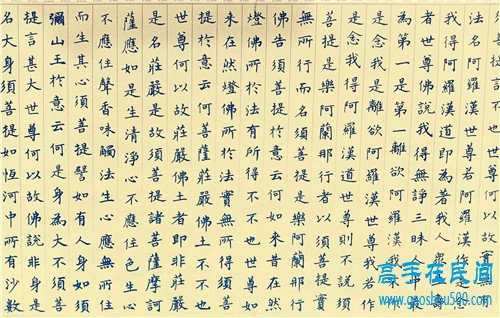 提世尊何以故實無有
法名阿羅漢世尊若阿羅漢作是念
我得阿羅漢道即為著我人眾生壽
者世尊佛說我得無諍三昧人中最
為第一是第一離欲阿羅漢我不作
是念我是離欲阿羅漢世尊我若作
是念我得阿羅漢道世尊則不說須
菩提是樂阿蘭那行者以須菩提實
無所行而名須菩提是樂阿蘭那行
佛告須菩提於意云何如來昔在然
燈佛所於法有所得不不也世尊如
來在然燈佛所於法實無所得須菩
提於意云何菩薩莊嚴佛土不不也
世尊何以故莊嚴佛土者即非莊嚴
是名莊嚴是故須菩提諸菩薩摩訶
薩應如是生清淨心不應住色生心
不應住聲香味觸法生心應無所住
而生其心須菩提譬如有人身如須
彌山王於意云何是身為大不須菩
提言甚大世尊何以故佛說非身是
名大身須菩提如恆河中所有沙數
高手在民间
www.gaoshou500.com